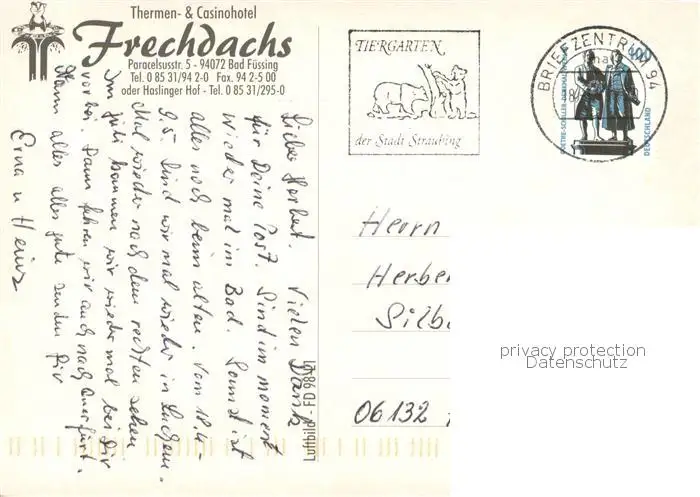 Thermen- & Casinohotel
Frechdachs
Paracelsusstr. 5 - 94072 Bad Füssing
Tel. 0 85 31/94 2-0 Fax. 94 2-5 00
oder Haslinger Hof - Tel. 0 85 31/295-0
TIERGARTEN
der Stadt Straubing
BRIEFZENTRUM 94
GOETHE-SCHILLER-DENKMAL
DEUTSCHLAND
Lieber Herbert. Vielen Dank
für Deine Post. Sind im moment
wieder mal im Bad. Sonnst ist
alles noch beim alten. Vom 18.4-
9.5. sind wir mal wieder in Sachsen.
Mal wieder nach dem rechten sehen
Im Juli kommen wir wieder mal bei Dir
vorbei. Dann fahren wir auch nach Querfurt.
Mann alles alles gute senden Dir
Erna u Heinz
Luftbild - FD 986 LT
Herrn
Herber
Silb
06132
privacy protection
Datenschutz